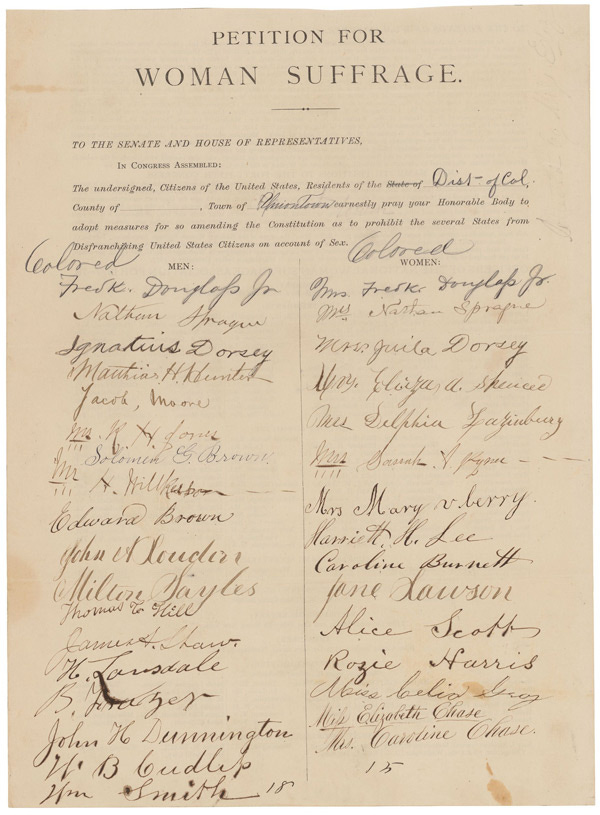 PETITION FOR
WOMAN SUFFRAGE.
TO THE SENATE AND HOUSE OF REPRESENTATIVES,
IN CONGRESS ASSEMBLED:
The undersigned, Citizens of the United States, Residents of the State of Dist- of Col,
County of , Town of Uniontown earnestly pray your Honorable Body to
adopt measures for so amending the Constitution as to prohibit the several States from
Disfranchising United States Citizens on account of Sex.
Colored
MEN:
Fredk. Douglass Jr
Nathan Sprague
Ignatius Dorsey
Matthias H. Hunter
Jacob, Moore
Mr. H. Jones
Solomon G. Brown
Mr A. Hill
Edward Brown
John A Loudon
Milton Sayles
Thomas T. Hill
James H. Shaw.
H. Lansdale
B.
John H Dunnington
W B Cudlip
Wm Smith 18
Colored
WOMEN:
Mrs. Fredk Douglass Jr.
Mrs Nathan Sprague
Mrs. Juila Dorsey
Mrs. Spencer
Mrs Delphia
Mrs Sarah
Mrs Mary v berry.
Harriett. H. Lee
Caroline Burnett
Jane Lawson
Alice Scott
Rozie Harris
Miss Celia Gray
Miss Elizabeth Chase
Mrs. Caroline Chase.
15